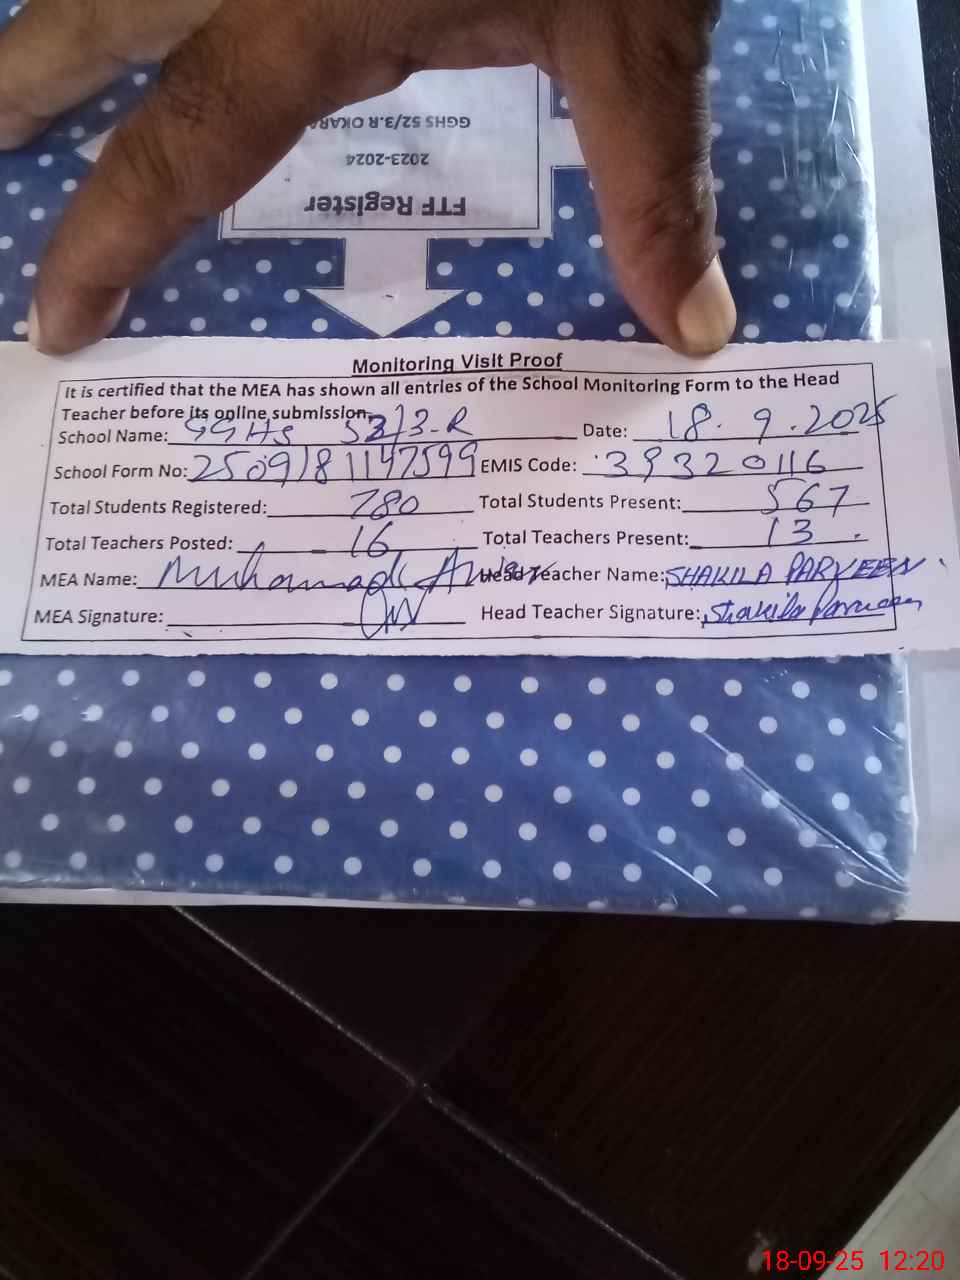 FTF Register
2023-2024
GGHS 52/3.R OKARA
Monitoring Visit Proof
It is certified that the MEA has shown all entries of the School Monitoring Form to the Head
Teacher before its online submission.
School Name: GGHS 52/3-R Date: 18.9.2025
School Form No: 2509181147599 EMIS Code: 39320116
Total Students Registered: 780 Total Students Present: 567
Total Teachers Posted: 16 Total Teachers Present: 13
MEA Name: Muhammad Head Teacher Name: SHAKILA PARVEEN
MEA Signature: Head Teacher Signature: Shakila Parveen
18-09-25 12:20